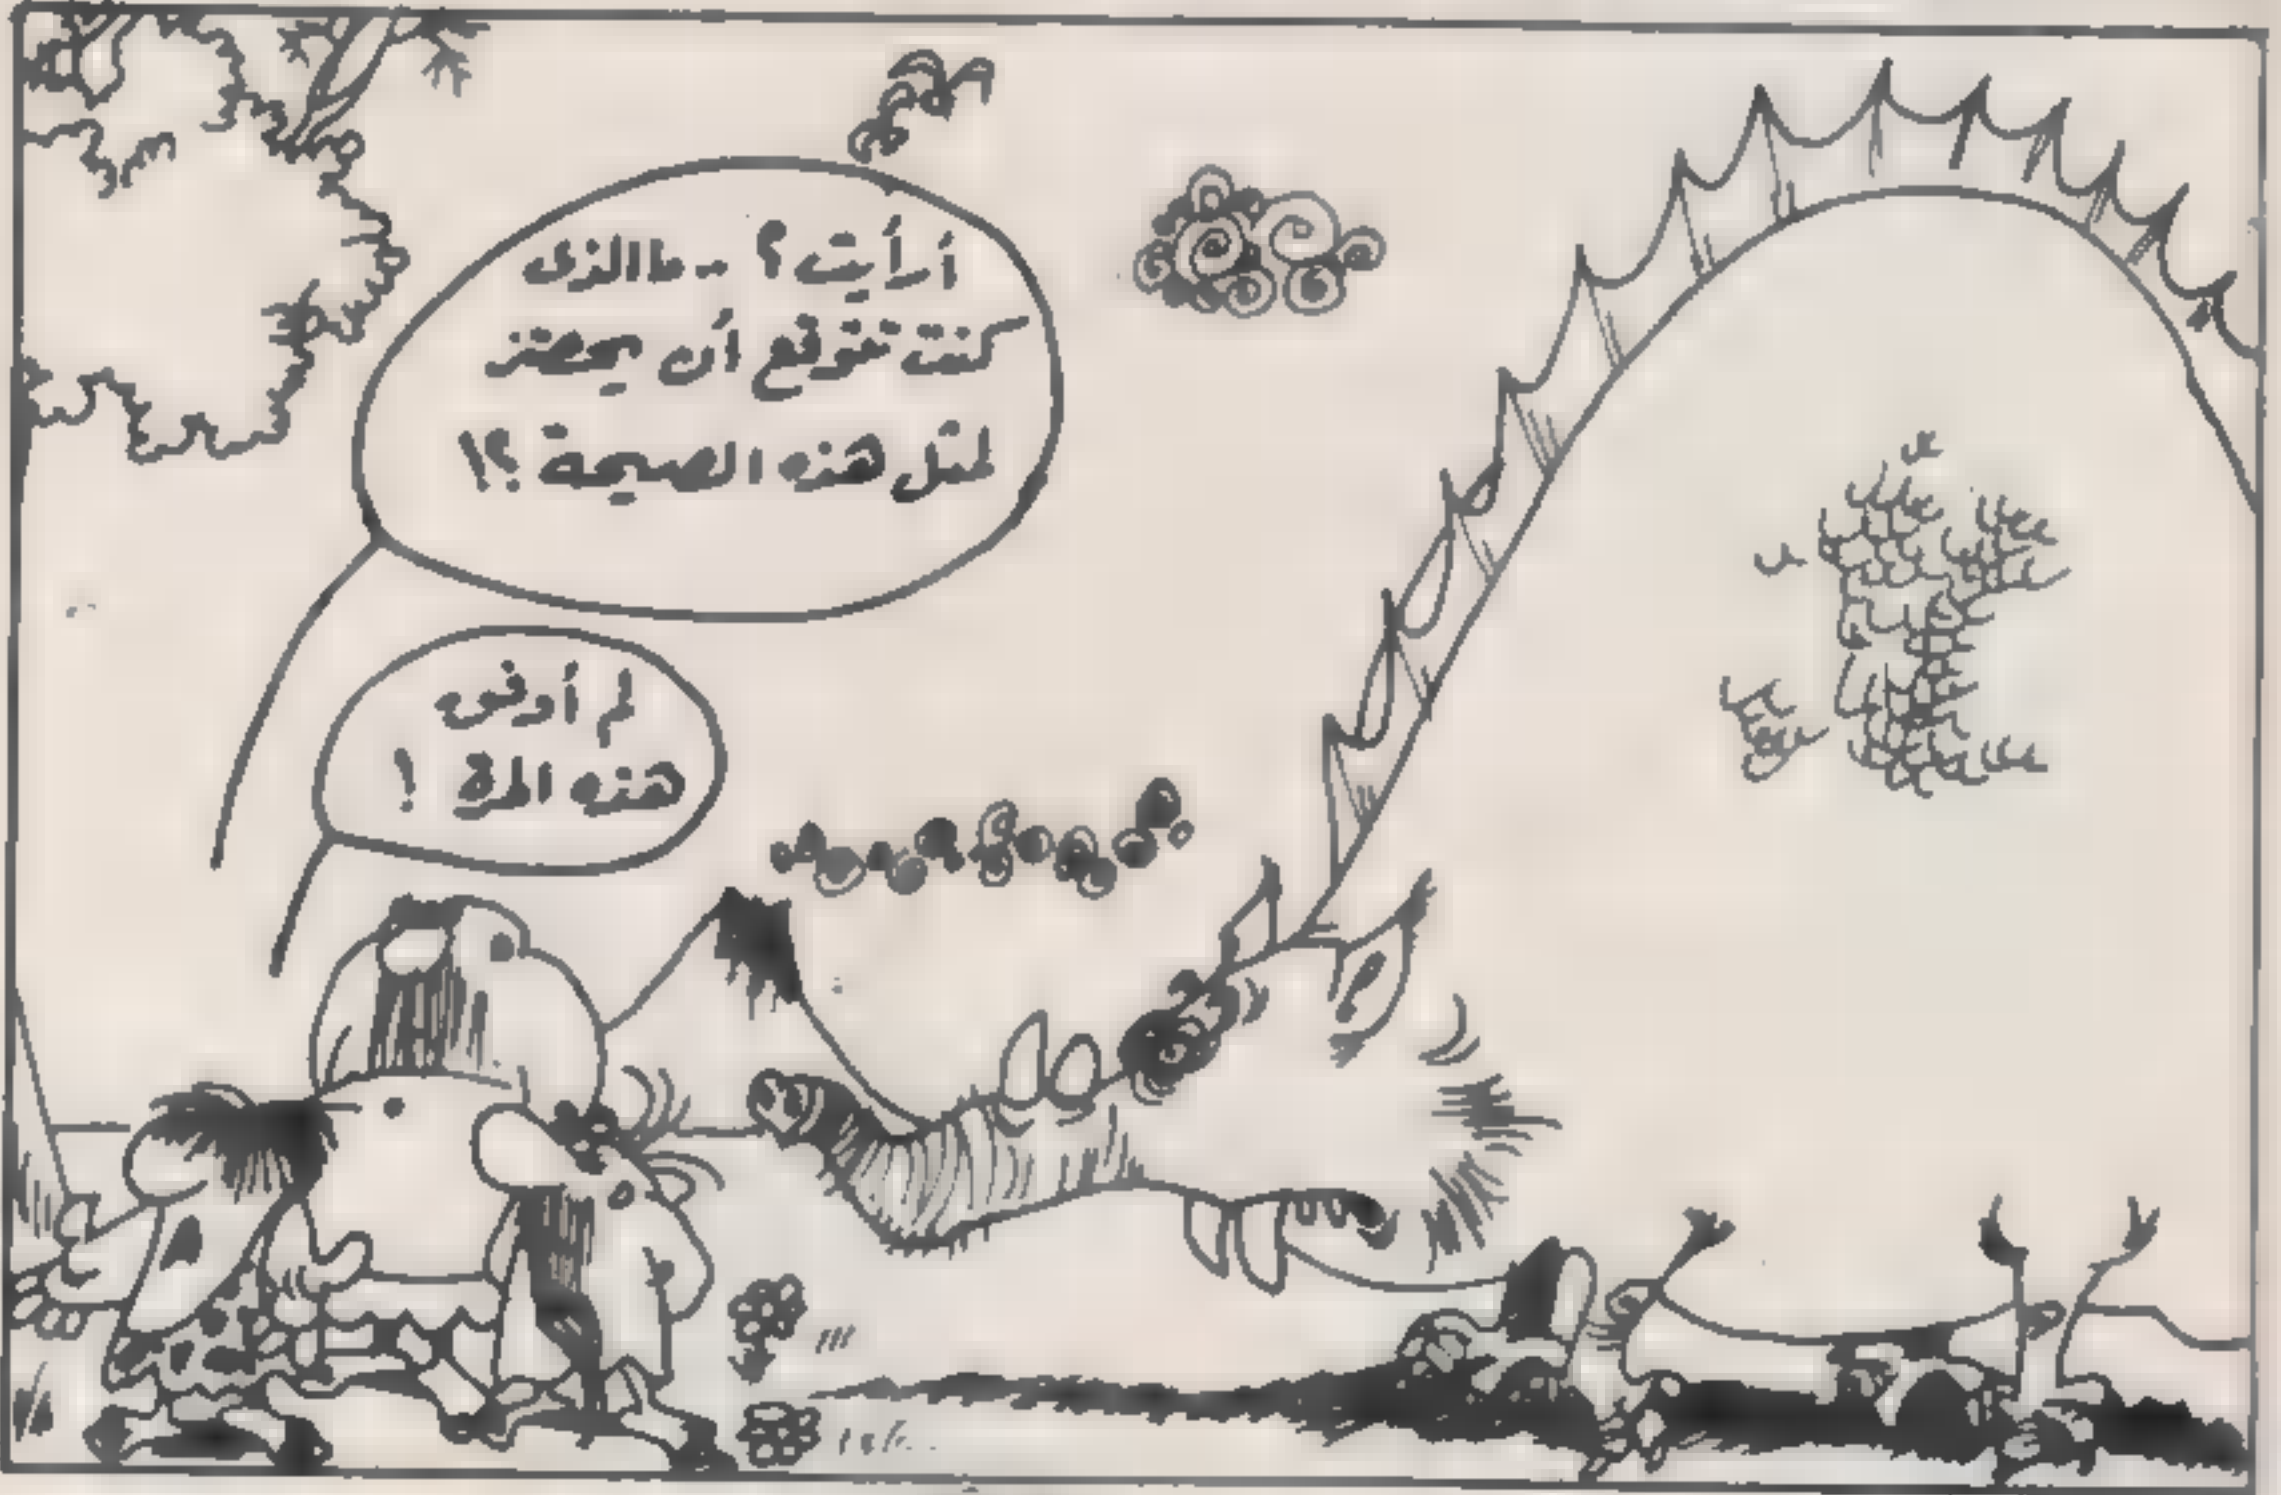 أرأيت؟ .. ما الذى
كنت تتوقع أن يحضر
لمثل هذه الصيحة؟!
لم أوفق
هذه المرة!